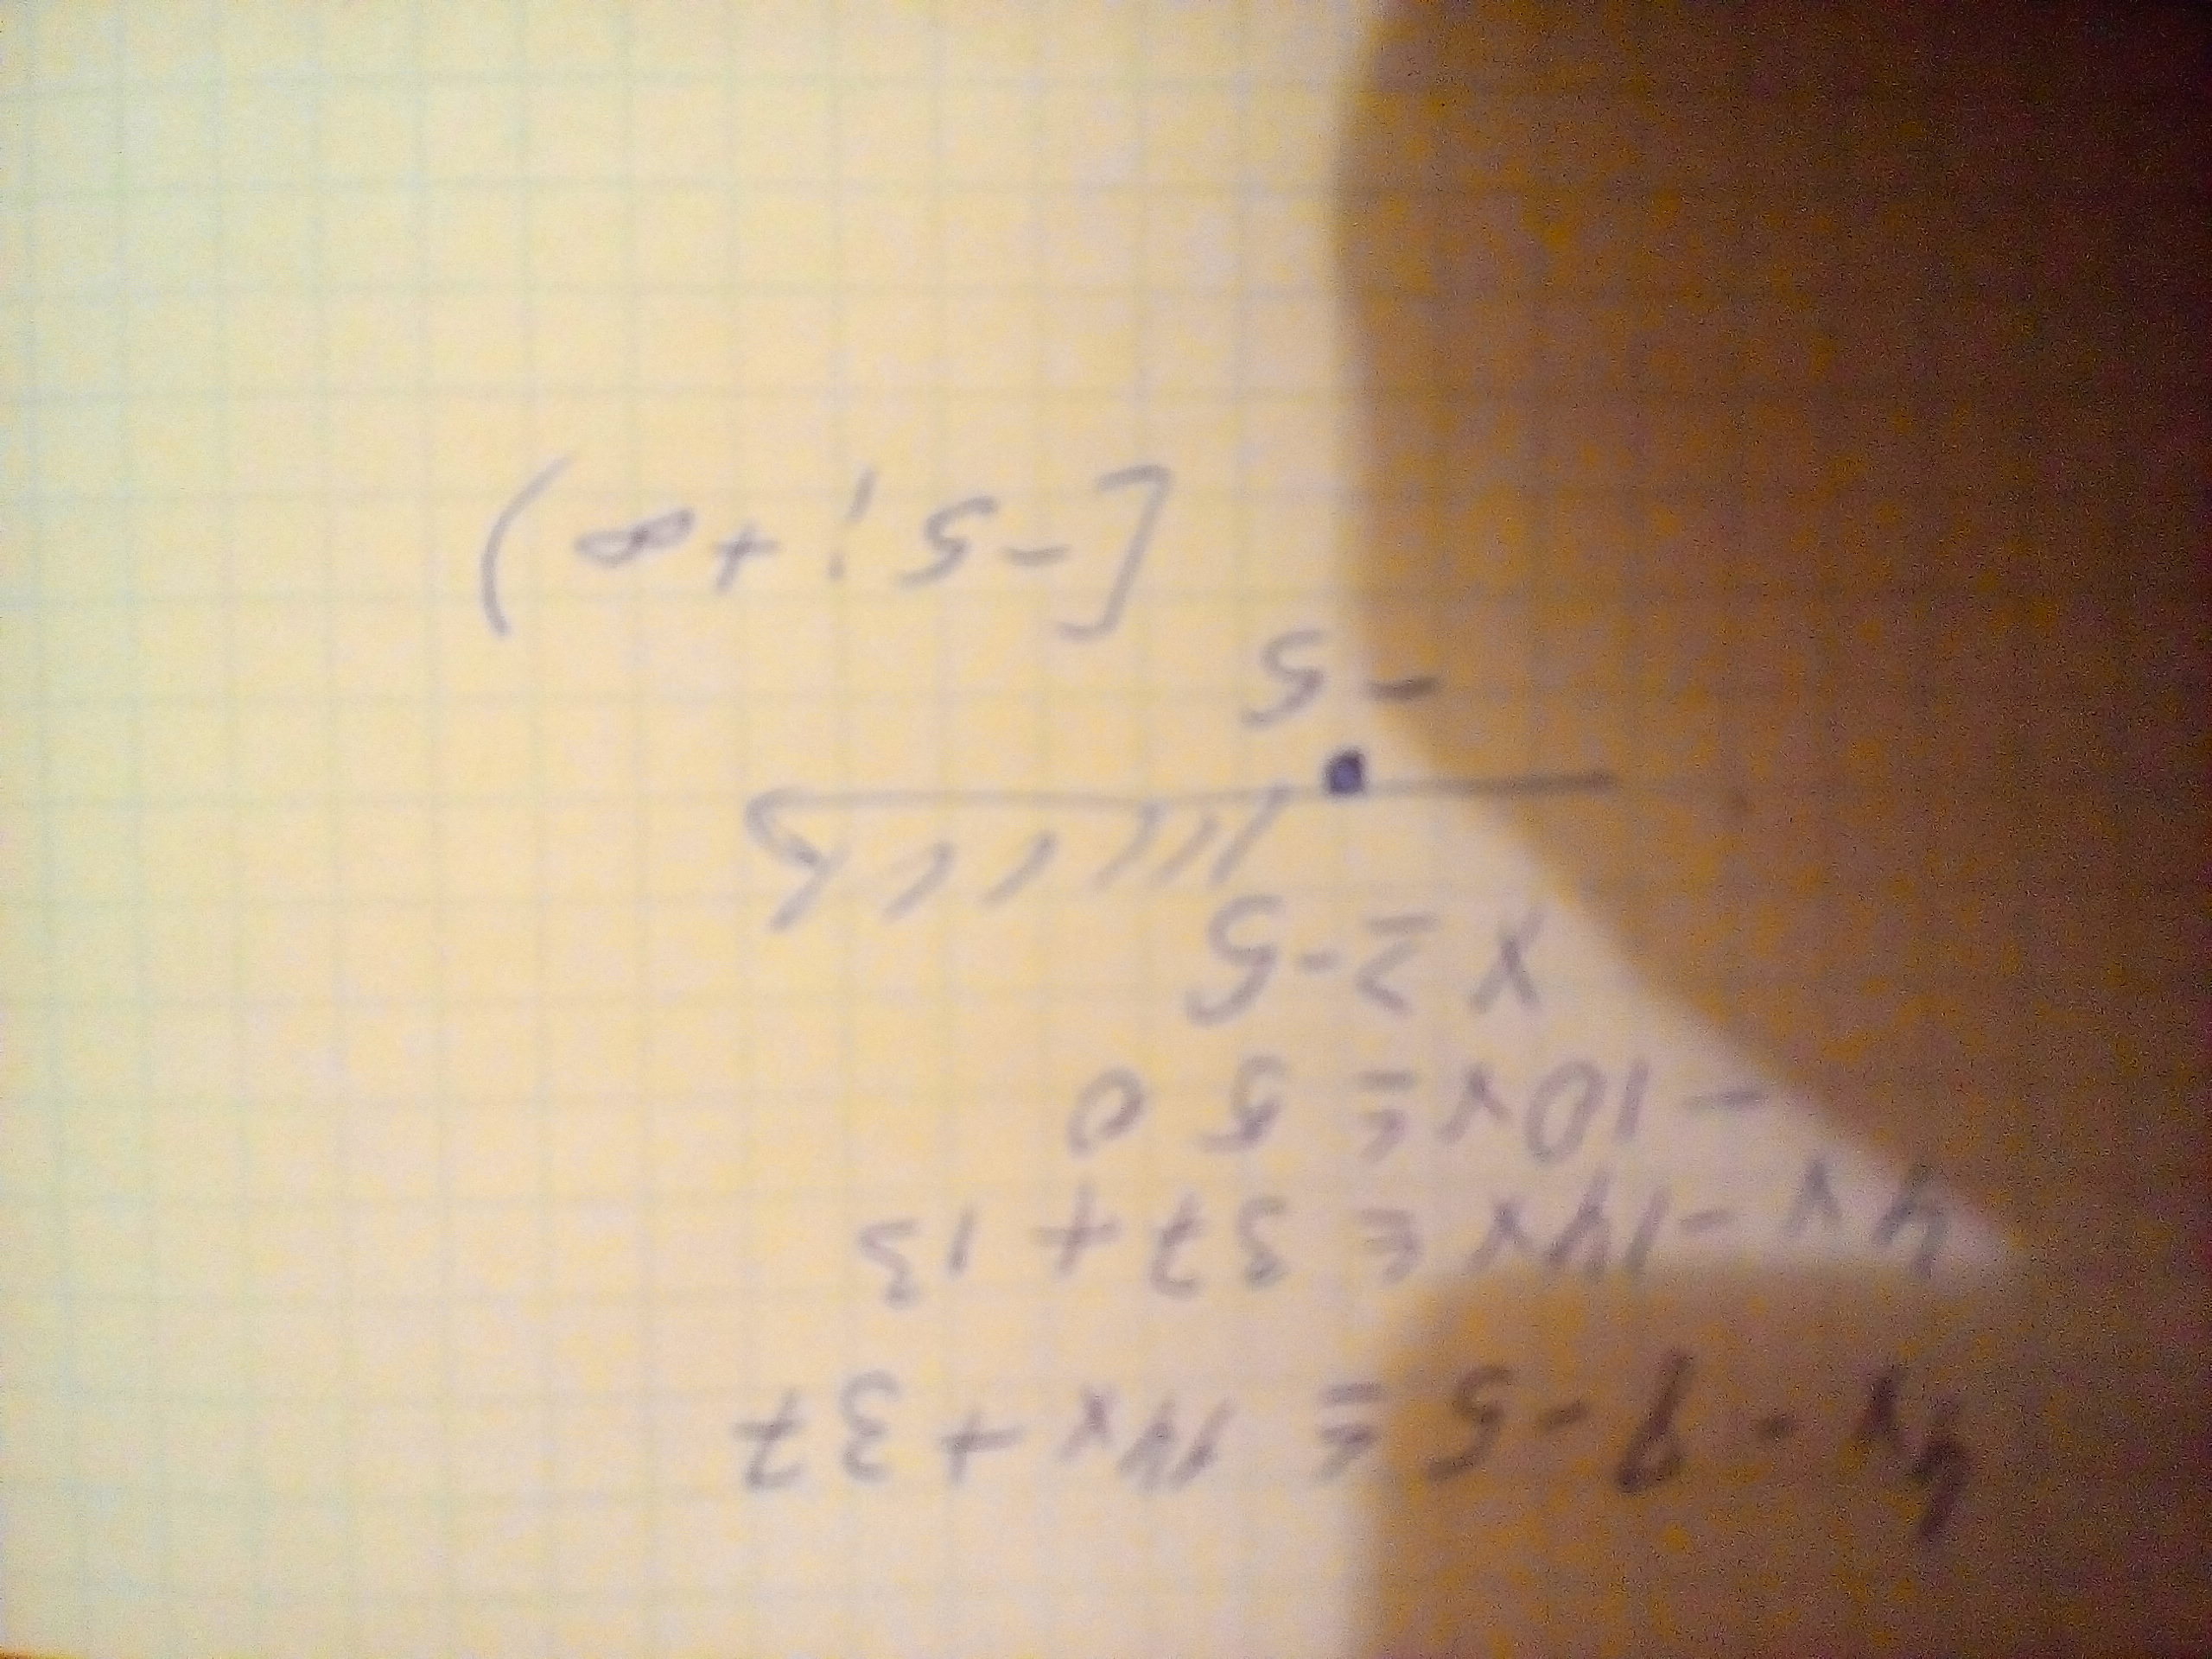 4x - 9 - 5 ≤ 14x + 37
4x - 14x ≤ 37 + 13
- 10x ≤ 50
x ≥ -5
-5
[-5; +∞)